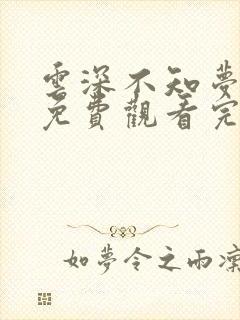 雲深不知夢
免費觀看完
如夢令之雨凜